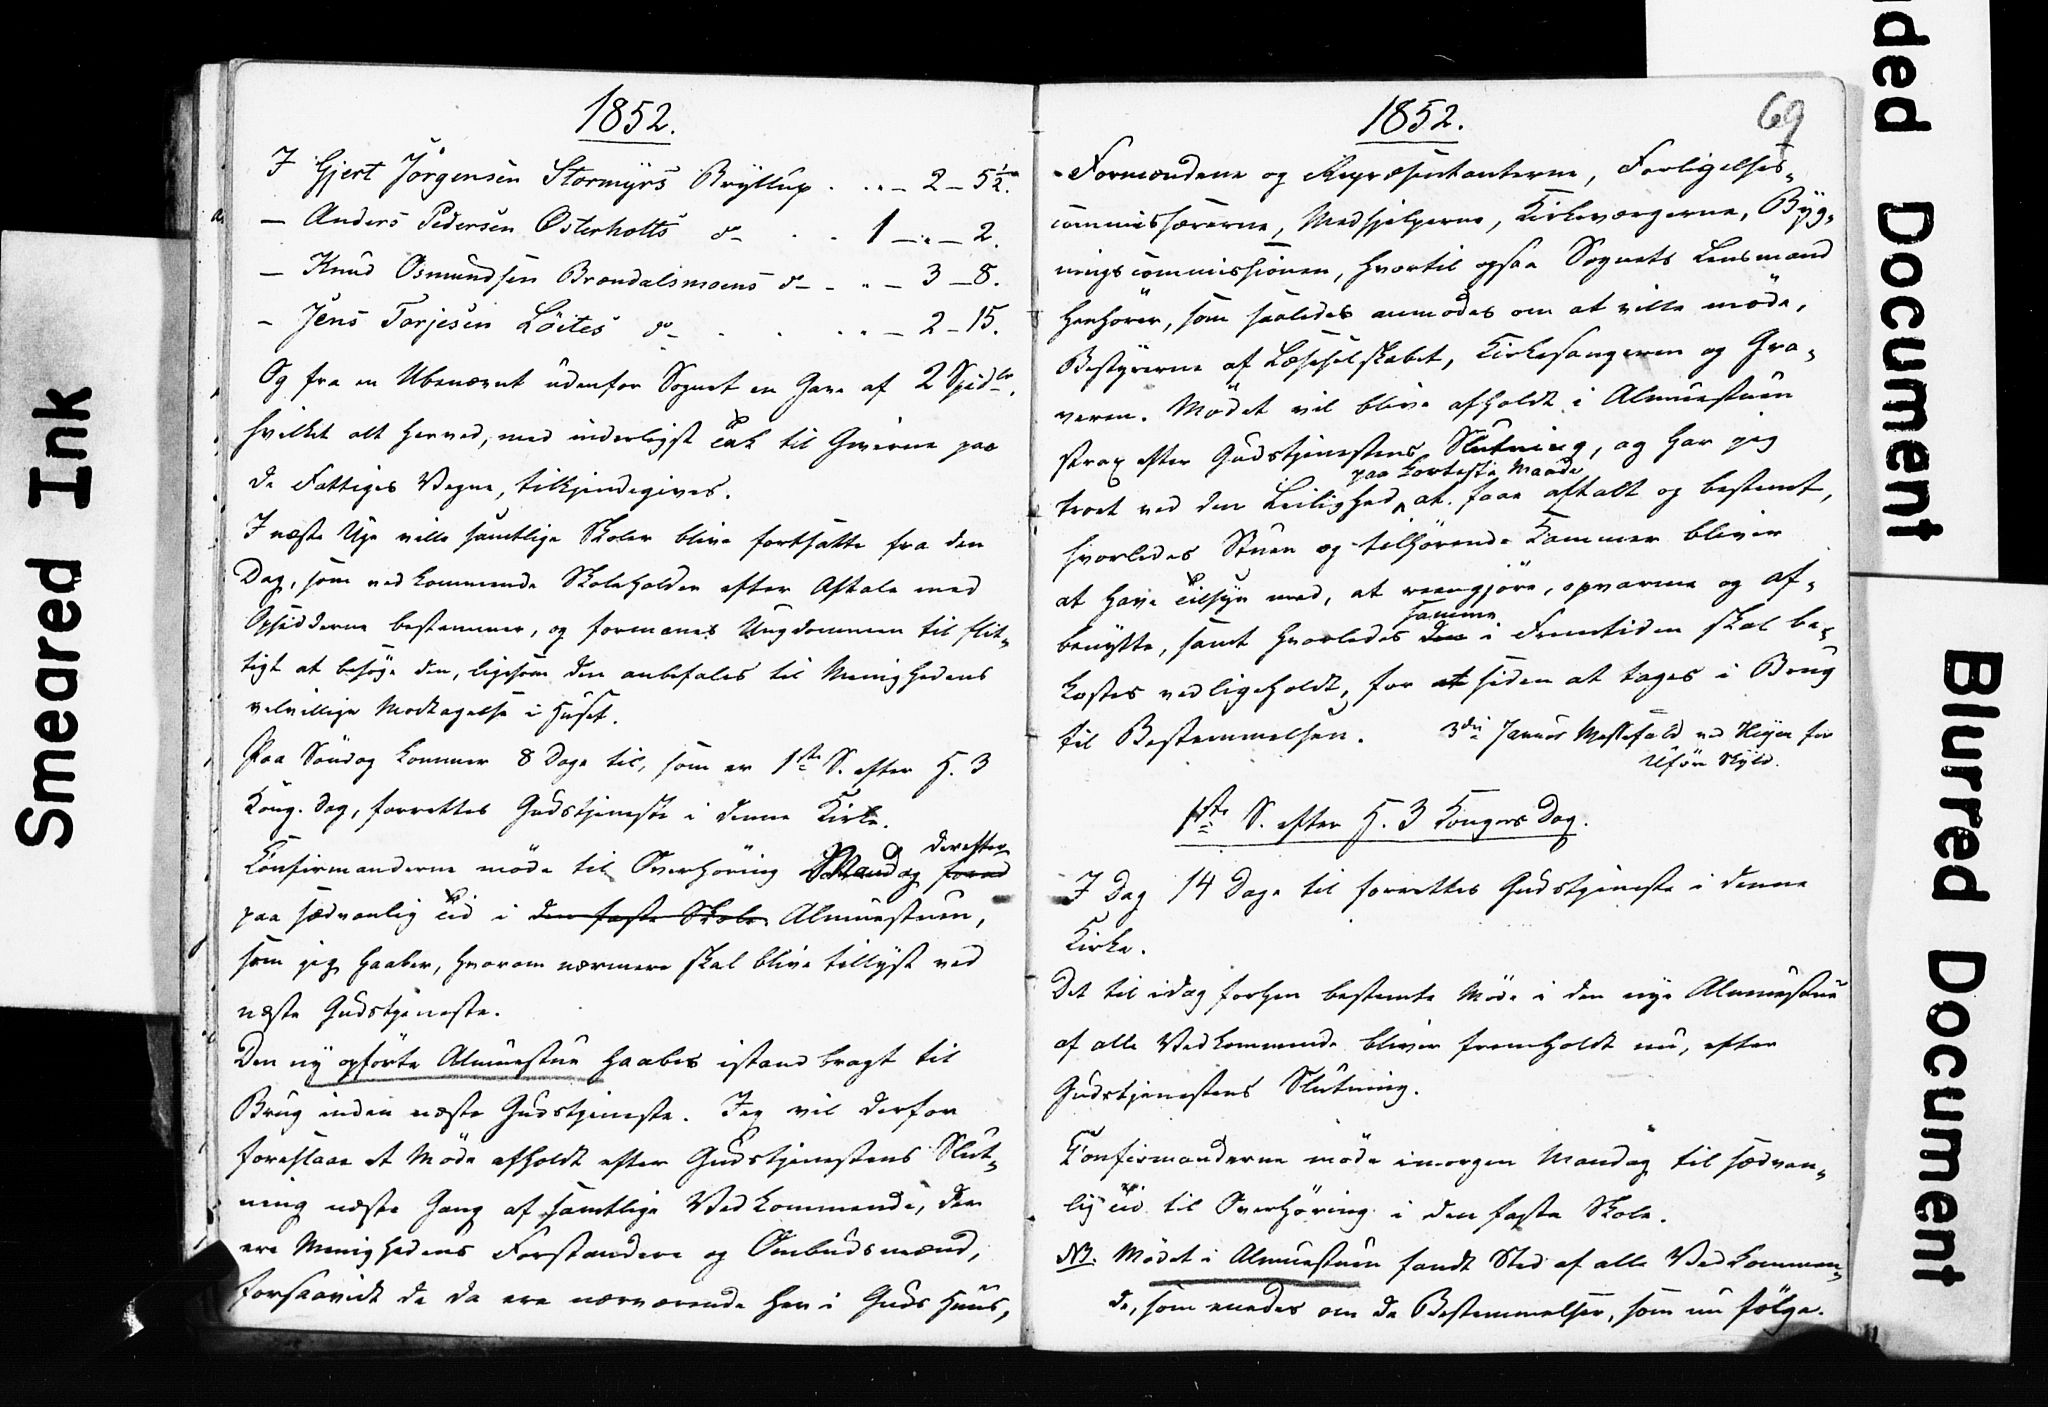 1852.
I Gjert Jörgensen Stormyrs Bryllup . . „ – 2 – 5 1/2.
– Anders Pedersen Österholts do – . . 1 – „ – 2.
– Knud Osmundsen Brændalsmoens do – . „ – 3 – 8.
– Jens Torjesen Löites do – . . „ – 2 – 15.
Og fra en Ubenævnt udenfor Sognet en Gave af 2 Spidlr.
hvilket alt herved, med inderligst Tak til Giverne paa
de Fattiges Vegne, tilkjendegives.
I næste Uge ville samtlige Skoler blive fortsatte fra den
Dag, som vedkommende Skoleholder efter Aftale med
Opsidderne bestemmer, og formanes Ungdommen til flit-
tigt at besöge den, ligesom den anbefales til Menighedens
velvillige Modtagelse i Huset.
Paa Söndag kommer 8 Dage til, som er 1ste S. efter H. 3
Kong. Dag, forrettes Gudstjeneste i denne Kirke.
derefter
Konfirmanderne möde til Overhöring Mandag forud
paa sædvanlig Tid i den faste Skole Almuestuen,
som jeg haaber, hvorom nærmere skal blive tillyst ved
næste Gudstjeneste.
Den ny opförte Almuestue haabes istandbragt til
Brug inden næste Gudstjeneste. Jeg vil derfor
foreslaae et Möde afholdt efter Gudstjenestens Slut-
ning næste Gang af samtlige Vedkommende, der
ere Menighedens Forstandere og Ombudsmænd,
forsaavidt de da ere nærværende her i Guds Huus,
1852.
69
Formændene og Repræsentanterne, Forligelses-
commissærerne, Medhjelperne, Kirkeværgerne, Byg-
ningscommissionen, hvortil ogsaa Sognets Lensmand
henhörer, som saaledes anmodes om at ville möde,
Bestyrerne af Læseselskabet, Kirkesangeren og Gra-
veren. Mödet vil blive afholdt i Almuestuen
strax efter Gudstjenestens Slutning, og har jeg
paa korteste Maade
troet ved den Leilighed at faae aftalt og bestemt,
hvorledes Stuen og tilhörende Kammer bliver
at have Tilsyn med, at reengjöre, opvarme og af-
samme
benytte, samt hvorledes den i Fremtiden skal be-
kostes vedligeholdt, for at siden at tages i Brug
til Bestemmelsen. 3die Januar Messefald ved Heien for
Uför Skyld.
1ste S. efter H. 3 Kongers Dag.
I Dag 14 Dage til forrettes Gudstjeneste i denne
Kirke.
Det til idag forhen bestemte Möde i den nye Almuestue
af alle Vedkommende bliver fremholdt nu, efter
Gudstjenestens Slutning.
Konfirmanderne möde imorgen Mandag til sædvan-
lig Tid til Overhöring i den faste Skole.
NB. Mödet i Almuestuen fandt Sted af alle Vedkommen-
de, som enedes om de Bestemmelser, som nu fölge.
Smeared Ink
ded Document
Blurred Document